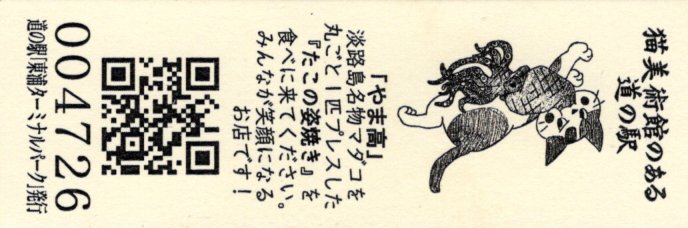 猫美術館のある
道の駅
「やま高」
淡路島名物マダコを
丸ごと1匹プレスした
『たこの姿焼き』を
食べに来てください。
みんなが笑顔になる
お店です！
004726
道の駅「東浦ターミナルパーク」発行